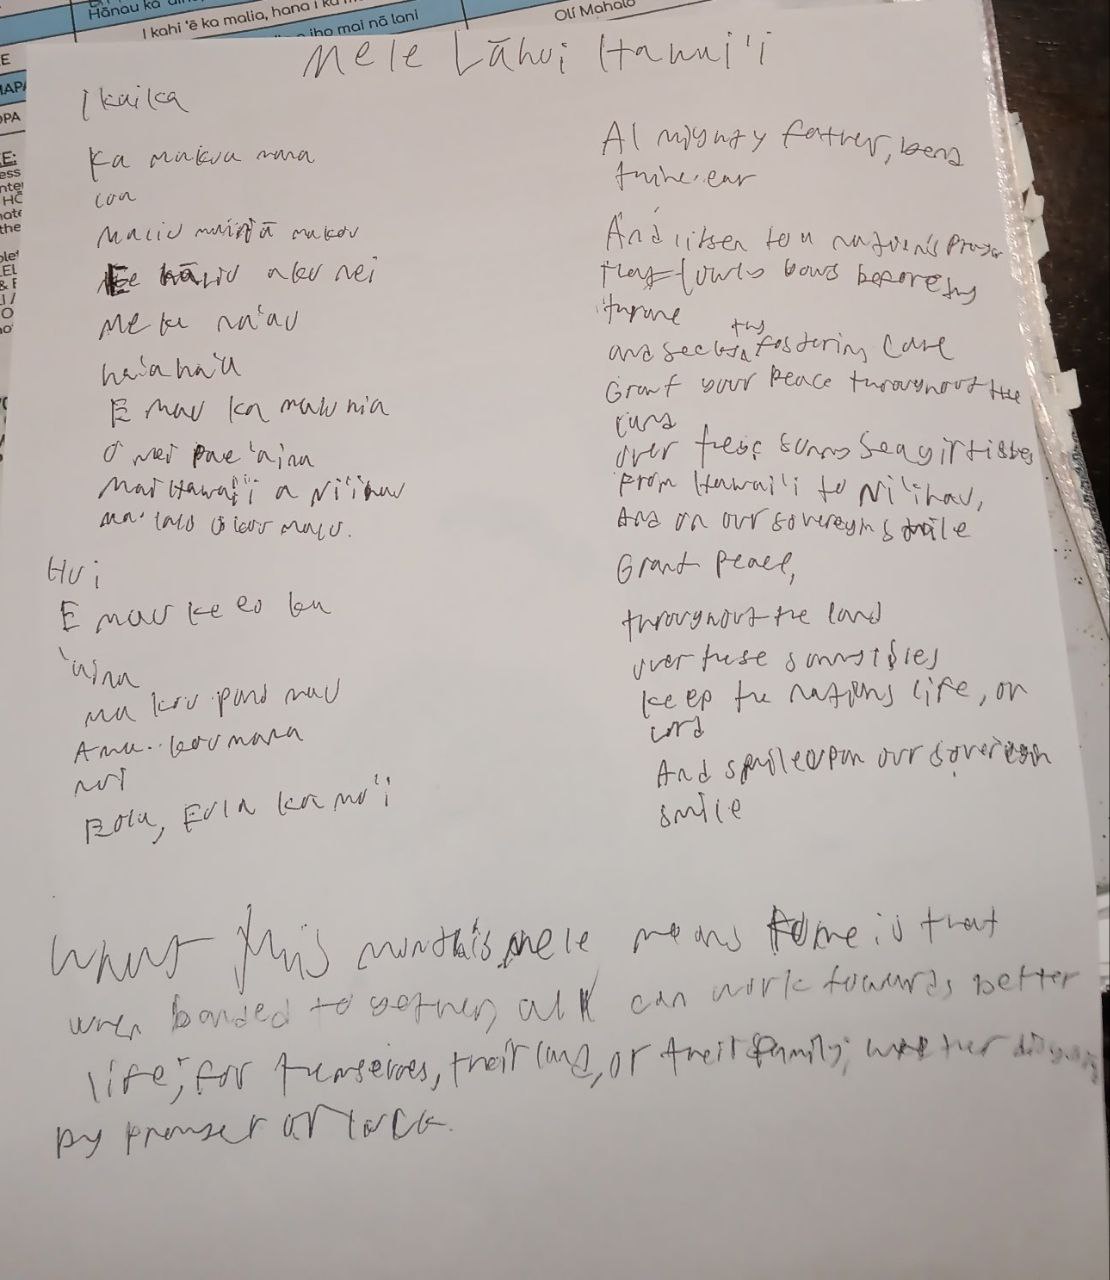 Hānau ka 'āina
I kahi 'ē ka malia, hana i ka
iho mai nā lani
Oli Mahalo
Mele Lāhui Hawai'i
Ikaika
Ka makua mana
loa
Maliu mai iā makou
Ee hāliu aku nei
Me ka na'au
ha'aha'a
E mau ka malu nia
O nei pae 'aina
Mai Hawai'i a Ni'ihau
Ma lalo o kou malu.
Hui
E mau ke ea ka
'aina
Ma kou pono mau
A ma kou mana
nui
Eola, Eola ka mo'i
Al mighty father, bend
thine ear
And listen to a nation's prayer
That lowly bows before thy
throne
and seeks thy fostering care
Grant your Peace throughout the
land
over these sunny sea girt isles
From Hawai'i to Ni'ihau,
And on our sovereign smile
Grant Peace,
throughout the land
over these sunny isles
keep the nations life, oh
lord
And smile upon our sovereign
smile
What this month's mele means to me is that
when banded together, all can work towards better
life; for themselves, their land, or their family; whether
by prayer or luck.